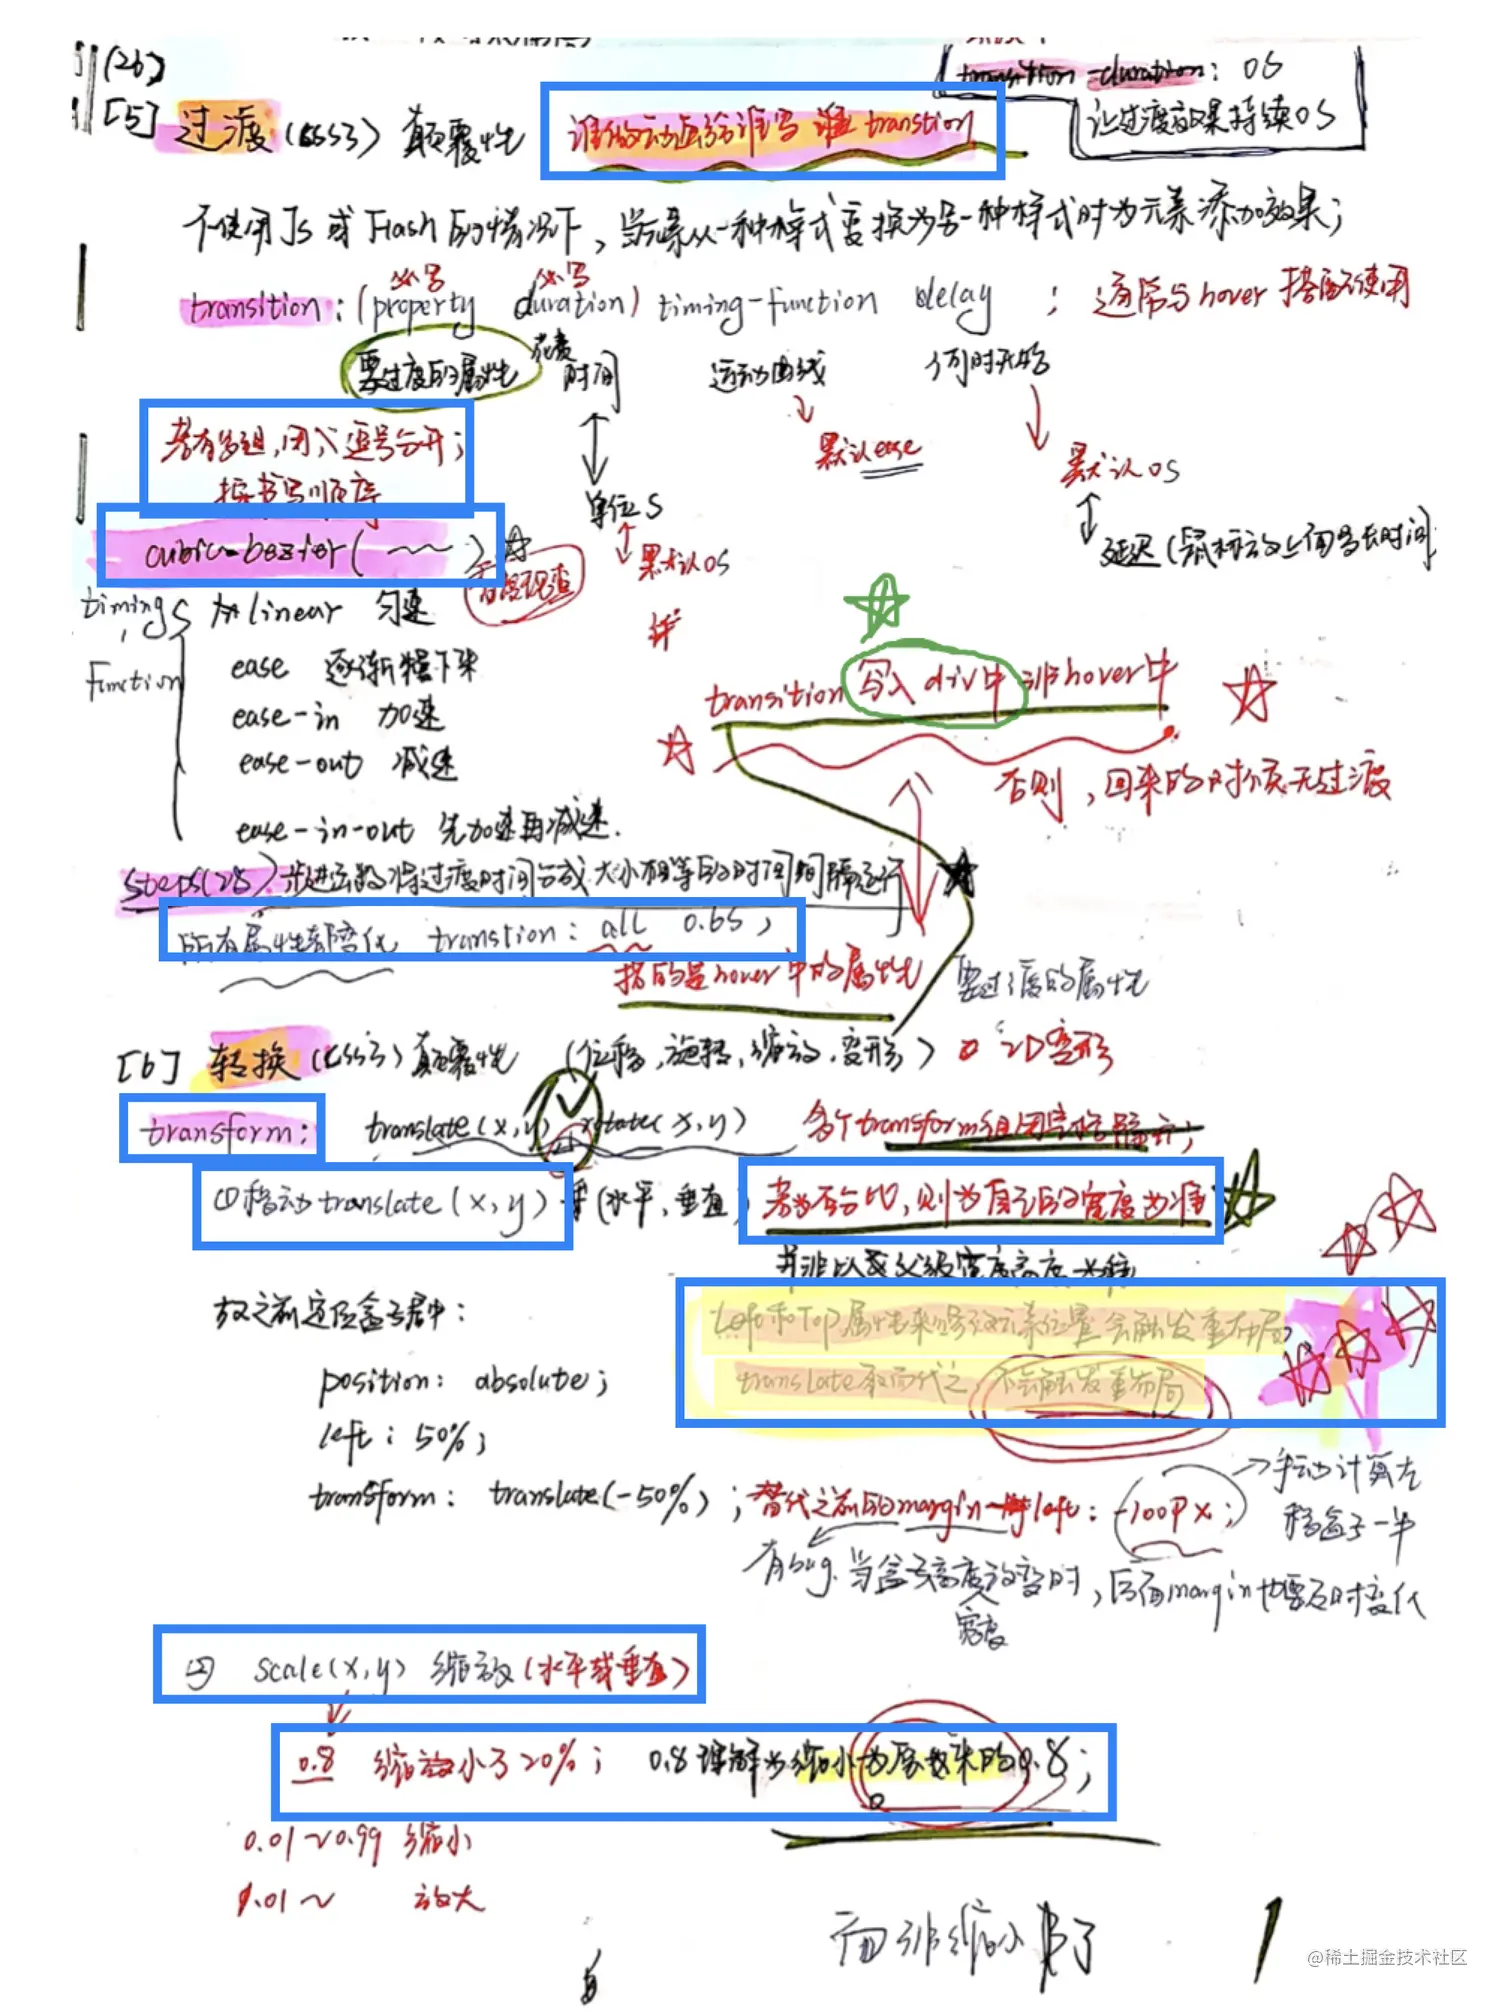 (26)
transition-duration: 0s
让过渡效果持续0S
[5] 过渡(CSS3) 颠覆性 谁做动画给谁写 transtion
不使用JS或Flash的情况下,当元素从一种样式变换为另一种样式时为元素添加效果;
必写 必写
transition:(property duration) timing-function delay ; 通常与hover搭配使用
要过度的属性 花费时间 运动曲线 何时开始
若有多组,用逗号分开;
按书写顺序
默认ease
默认0S
单位S
默认0S
延迟(鼠标放上
cubic-bezier( ~~ )
timing
Function
linear 匀速
ease 逐渐慢下来
ease-in 加速
ease-out 减速
ease-in-out 先加速再减速.
transition 写入div中 非hover中
否则,回来的时候无过渡
steps(28) 步进函数 将过渡时间分成大小相等的时间间隔运行
所有属性都变化 transtion: all 0.6s;
指的是hover中的属性 要过渡的属性
[6] 转换(CSS3) 颠覆性 (位移,旋转,缩放,变形) 2D变形
transform: translate(x,y) rotate(x,y) 多个transform组用空格隔开;
①移动translate(x,y) (水平,垂直) 若为百分比,则为自己的宽度为准
并非以父级宽度高度为准
left和top属性来 元素位置会触发重布局
translate取而代之,不会触发重布局
放之前定位盒子居中:
position: absolute;
left: 50%;
transform: translate(-50%); 替代之前的margin-left: -100px;
手动计算左
移盒子一半
有bug.当盒子高度改变时,后面margin也要及时变化
宽度
scale(x,y) 缩放(水平或垂直)
0.8 缩小了20%; 0.8理解为缩小为原来的0.8;
0.01~0.99 缩小
1.01~ 放大
而非缩小 了
@稀土掘金技术社区